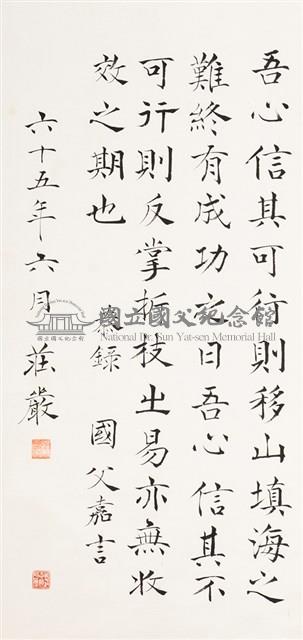 吾心信其可行則移山填海之
難終有成功之日吾心信其不
可行則反掌折枝之易亦無收
效之期也
恭錄 國父嘉言
六十五年六月 莊嚴
國立國父紀念館
National Dr. Sun Yat-sen Memorial Hall
國立國父紀念館